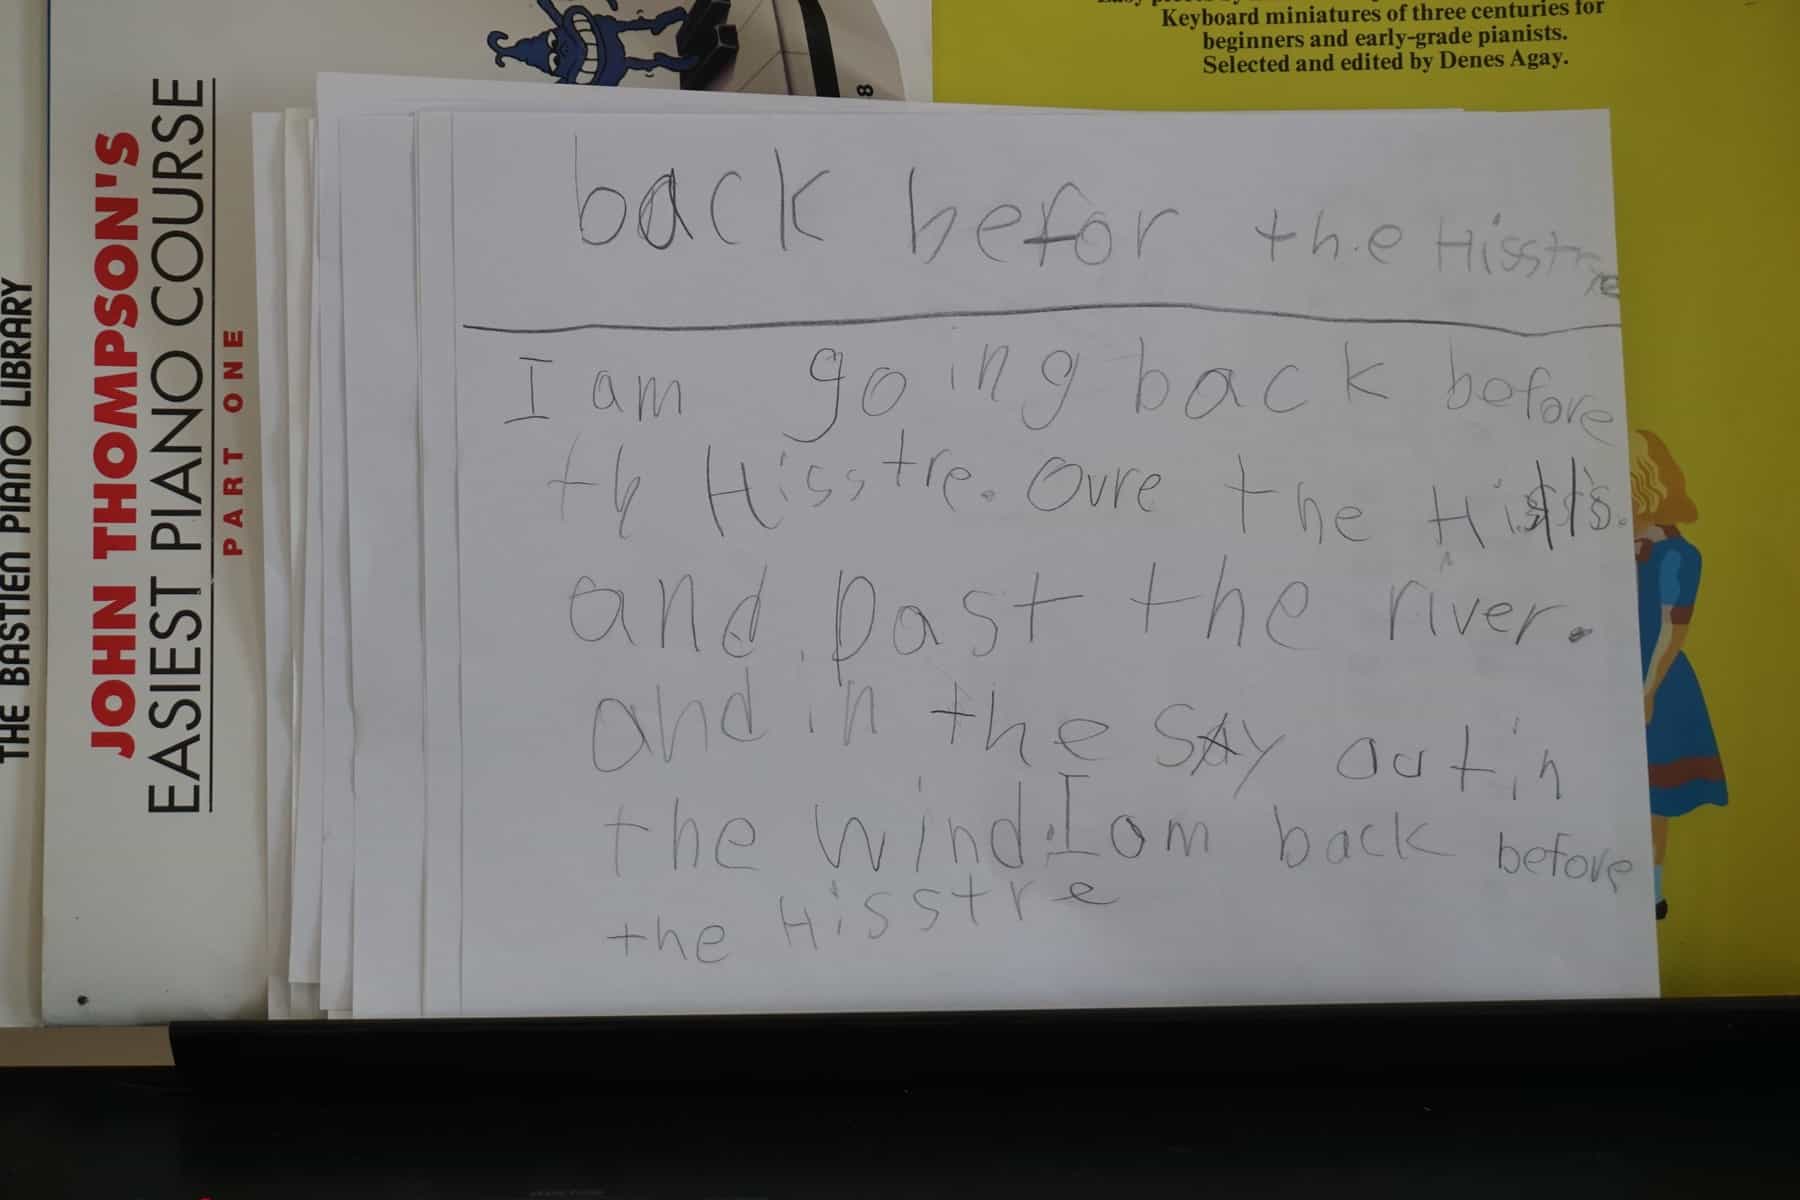 THE BASTIEN PIANO LIBRARY
JOHN THOMPSON'S
EASIEST PIANO COURSE
PART ONE
8
Keyboard miniatures of three centuries for
beginners and early-grade pianists.
Selected and edited by Denes Agay.
back befor the Hisstre
I am going back before
th Hisstre. Ovre the Hills.
and past the river.
and in the SAy out in
the wind. I am back before
the Hisstre